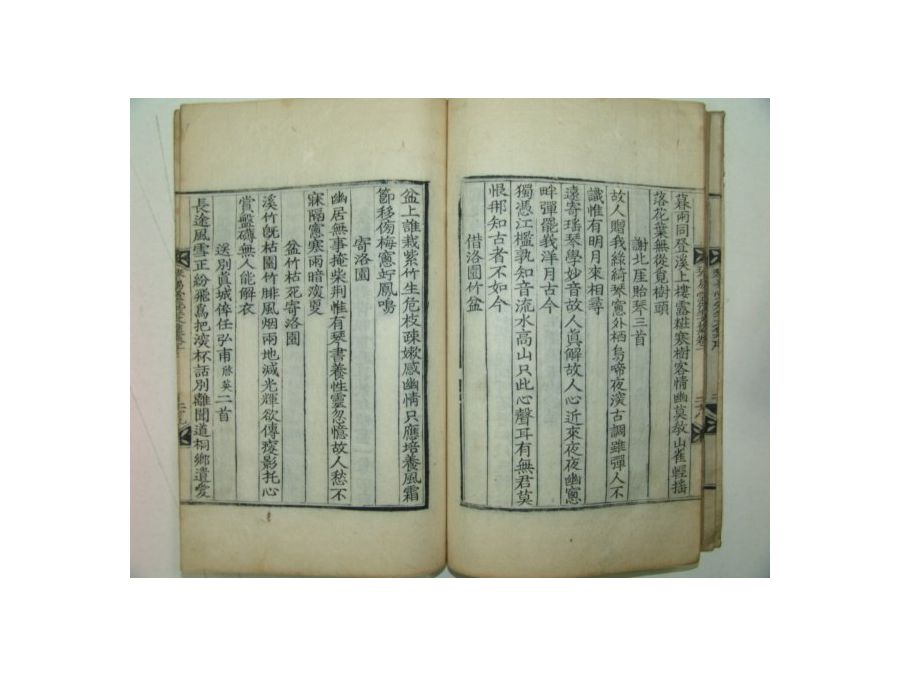 暮雨同登溪上樓雲粧寒樹客情幽莫敎山雀輕搖
落花葉無從覓樹頭
謝北厓貽琴三首
故人贈我綠綺琴窓外栖烏啼夜深古調雖彈人不
識惟有明月來相尋
遠寄瑤琴學妙音故人眞解故人心近來夜夜幽窓
畔彈罷峩洋月古今
獨憑江檻孰知音流水高山只此心聲耳有無君莫
恨那知古者不如今
借洛園竹盆
盆上誰栽紫竹生危枝疎嫩感幽情只應培養風霜
節移傍梅窓竚鳳鳴
寄洛園
幽居無事掩柴荆惟有琴書養性靈忽憶故人愁不
寐隔窓寒雨暗深更
盆竹枯死寄洛園
溪竹旣枯園竹腓風烟兩地減光輝欲傳瘦影托心
賞盤礴無人能解衣
送別眞城倅任弘甫 二首
長途風雪正紛飛爲把深杯話別離聞道桐鄉遺愛